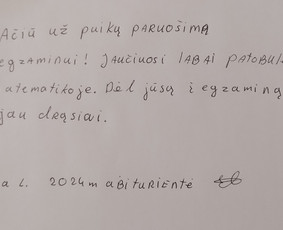 Ačiū už puikų paruošimą
egzaminui! Jaučiuosi labai patobul
atematikoje. Dėl jūsų į egzaminą
jau drąsiai.
a L. 2024m abiturientė